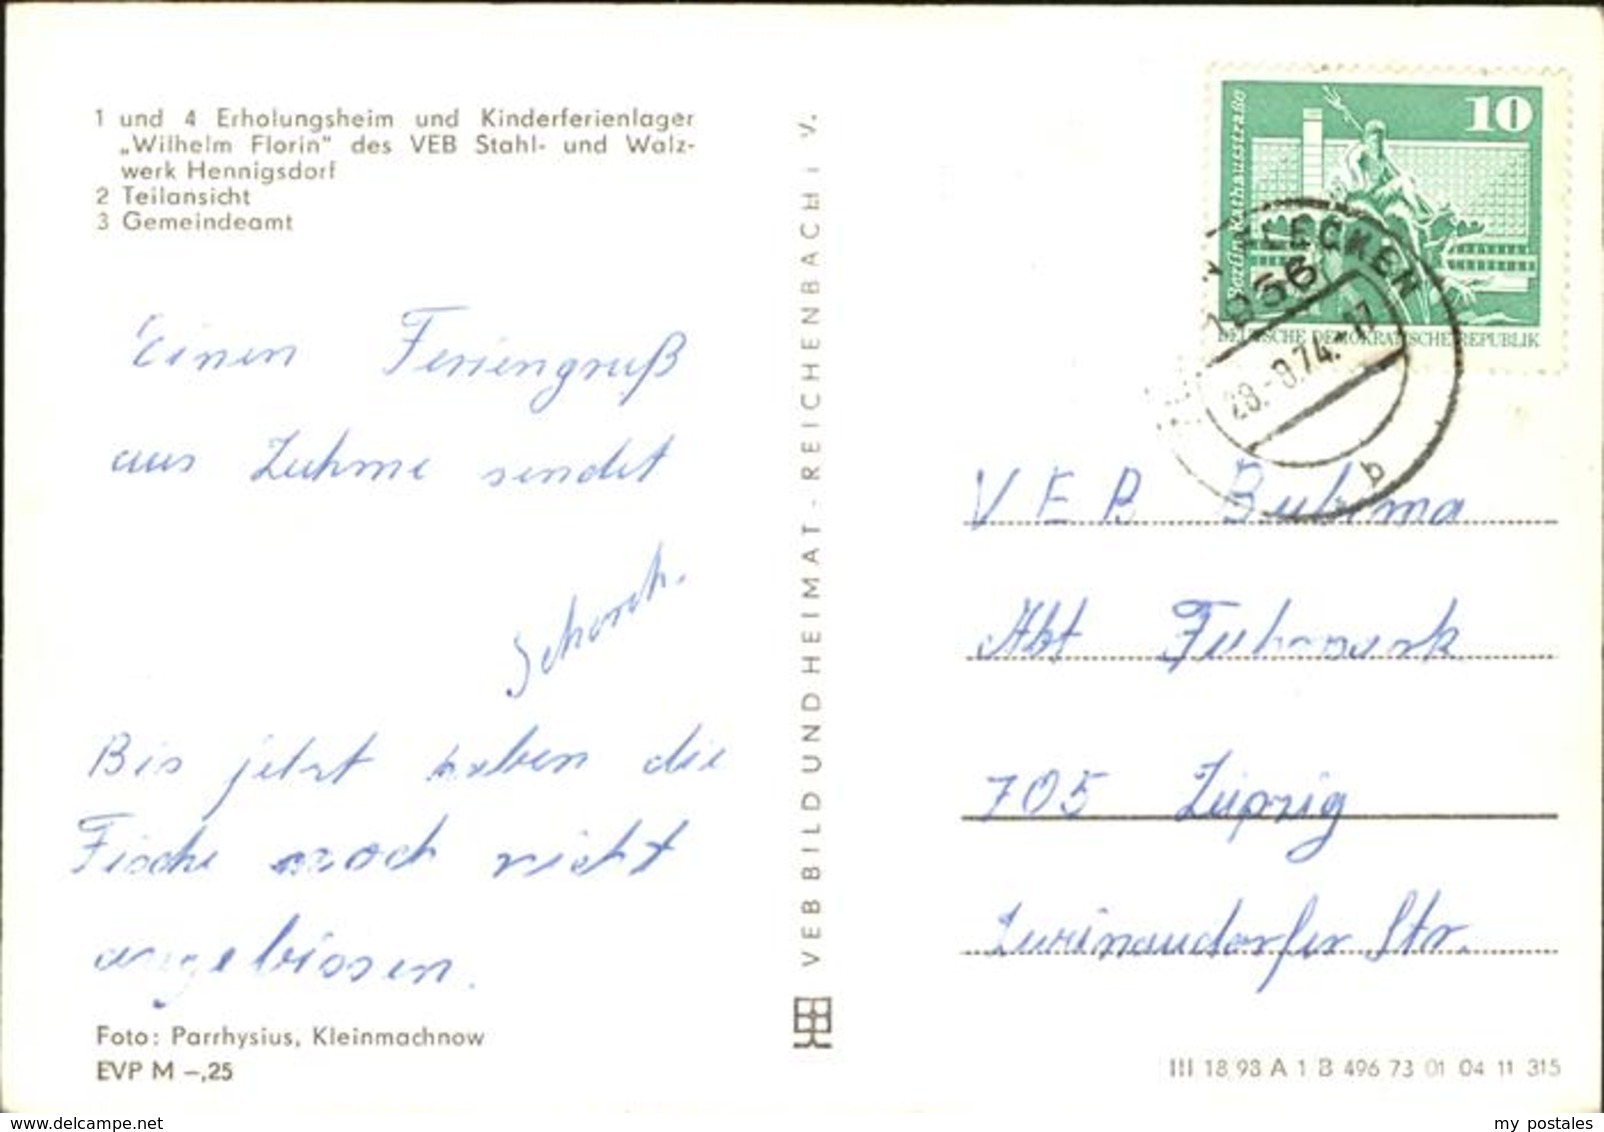 1 und 4 Erholungsheim und Kinderferienlager
„Wilhelm Florin" des VEB Stahl- und Walz-
werk Hennigsdorf
2 Teilansicht
3 Gemeindeamt
Einen Feriengruß
aus Zechine sendet
Schorsch.
Bis jetzt haben die
Fische noch nicht
angebissen.
Foto: Parrhysius, Kleinmachnow
EVP M –,25
VEB BILD UND HEIMAT · REICHENBACH i. V.
10
Berlin, Rathausstraße
DEUTSCHE DEMOKRATISCHE REPUBLIK
28.-8.74.-17
b
VEB
Abt Fuhrwerk
705 Leipzig
Str.
III 18 93 A 1 B 496 73 01 04 11 315
www.delcampe.net
my postales